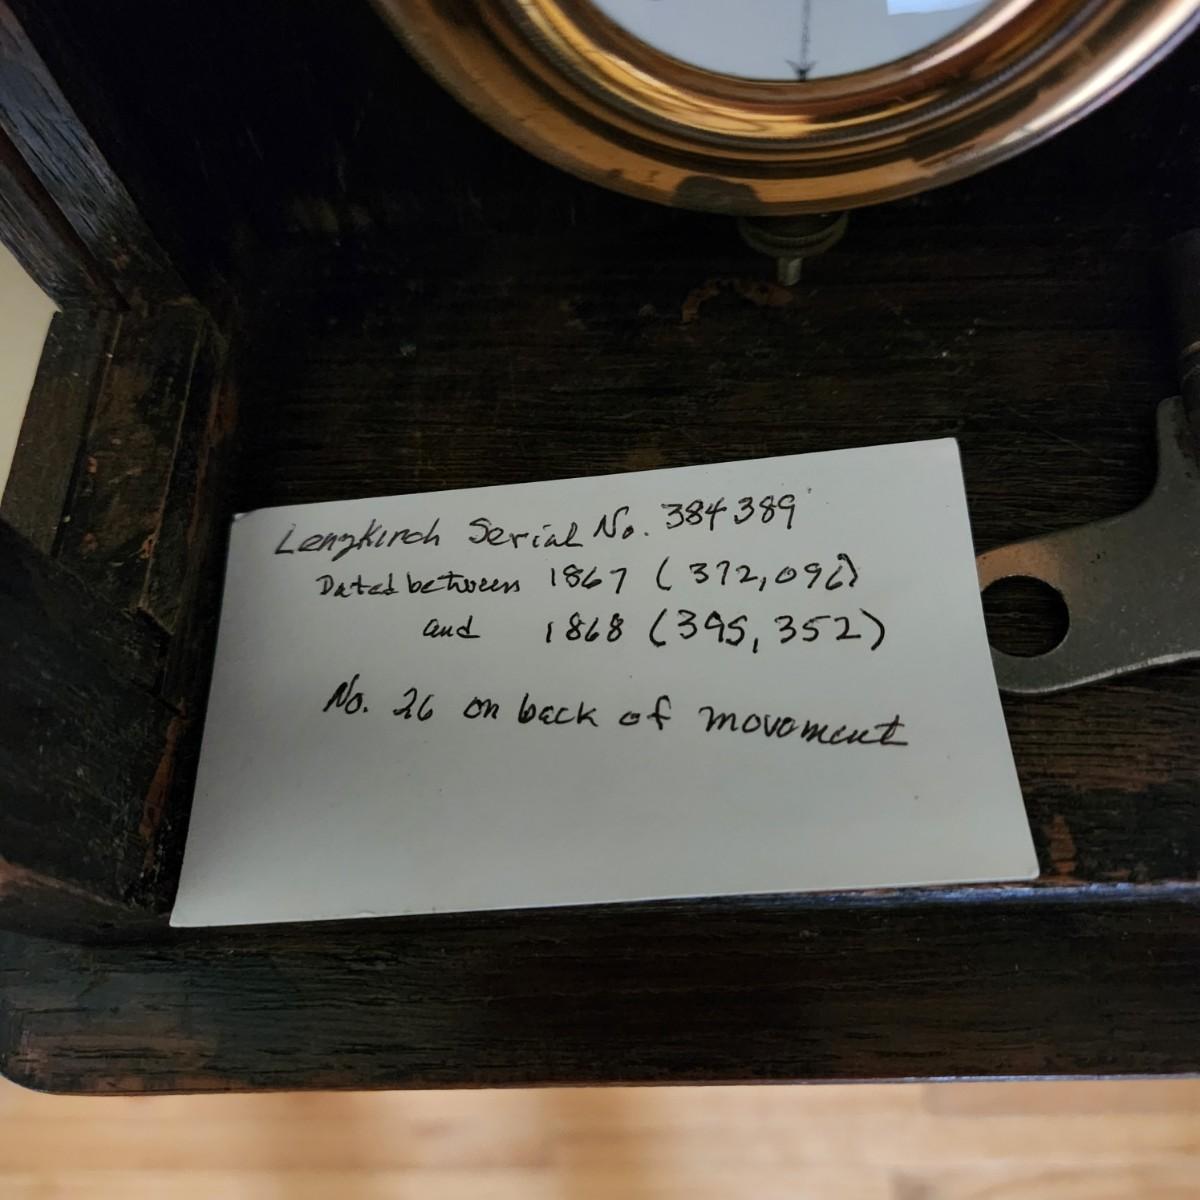 Lenzkirch Serial No. 384389
Dated between 1867 (372,096)
and 1868 (395,352)
No. 26 on back of movement